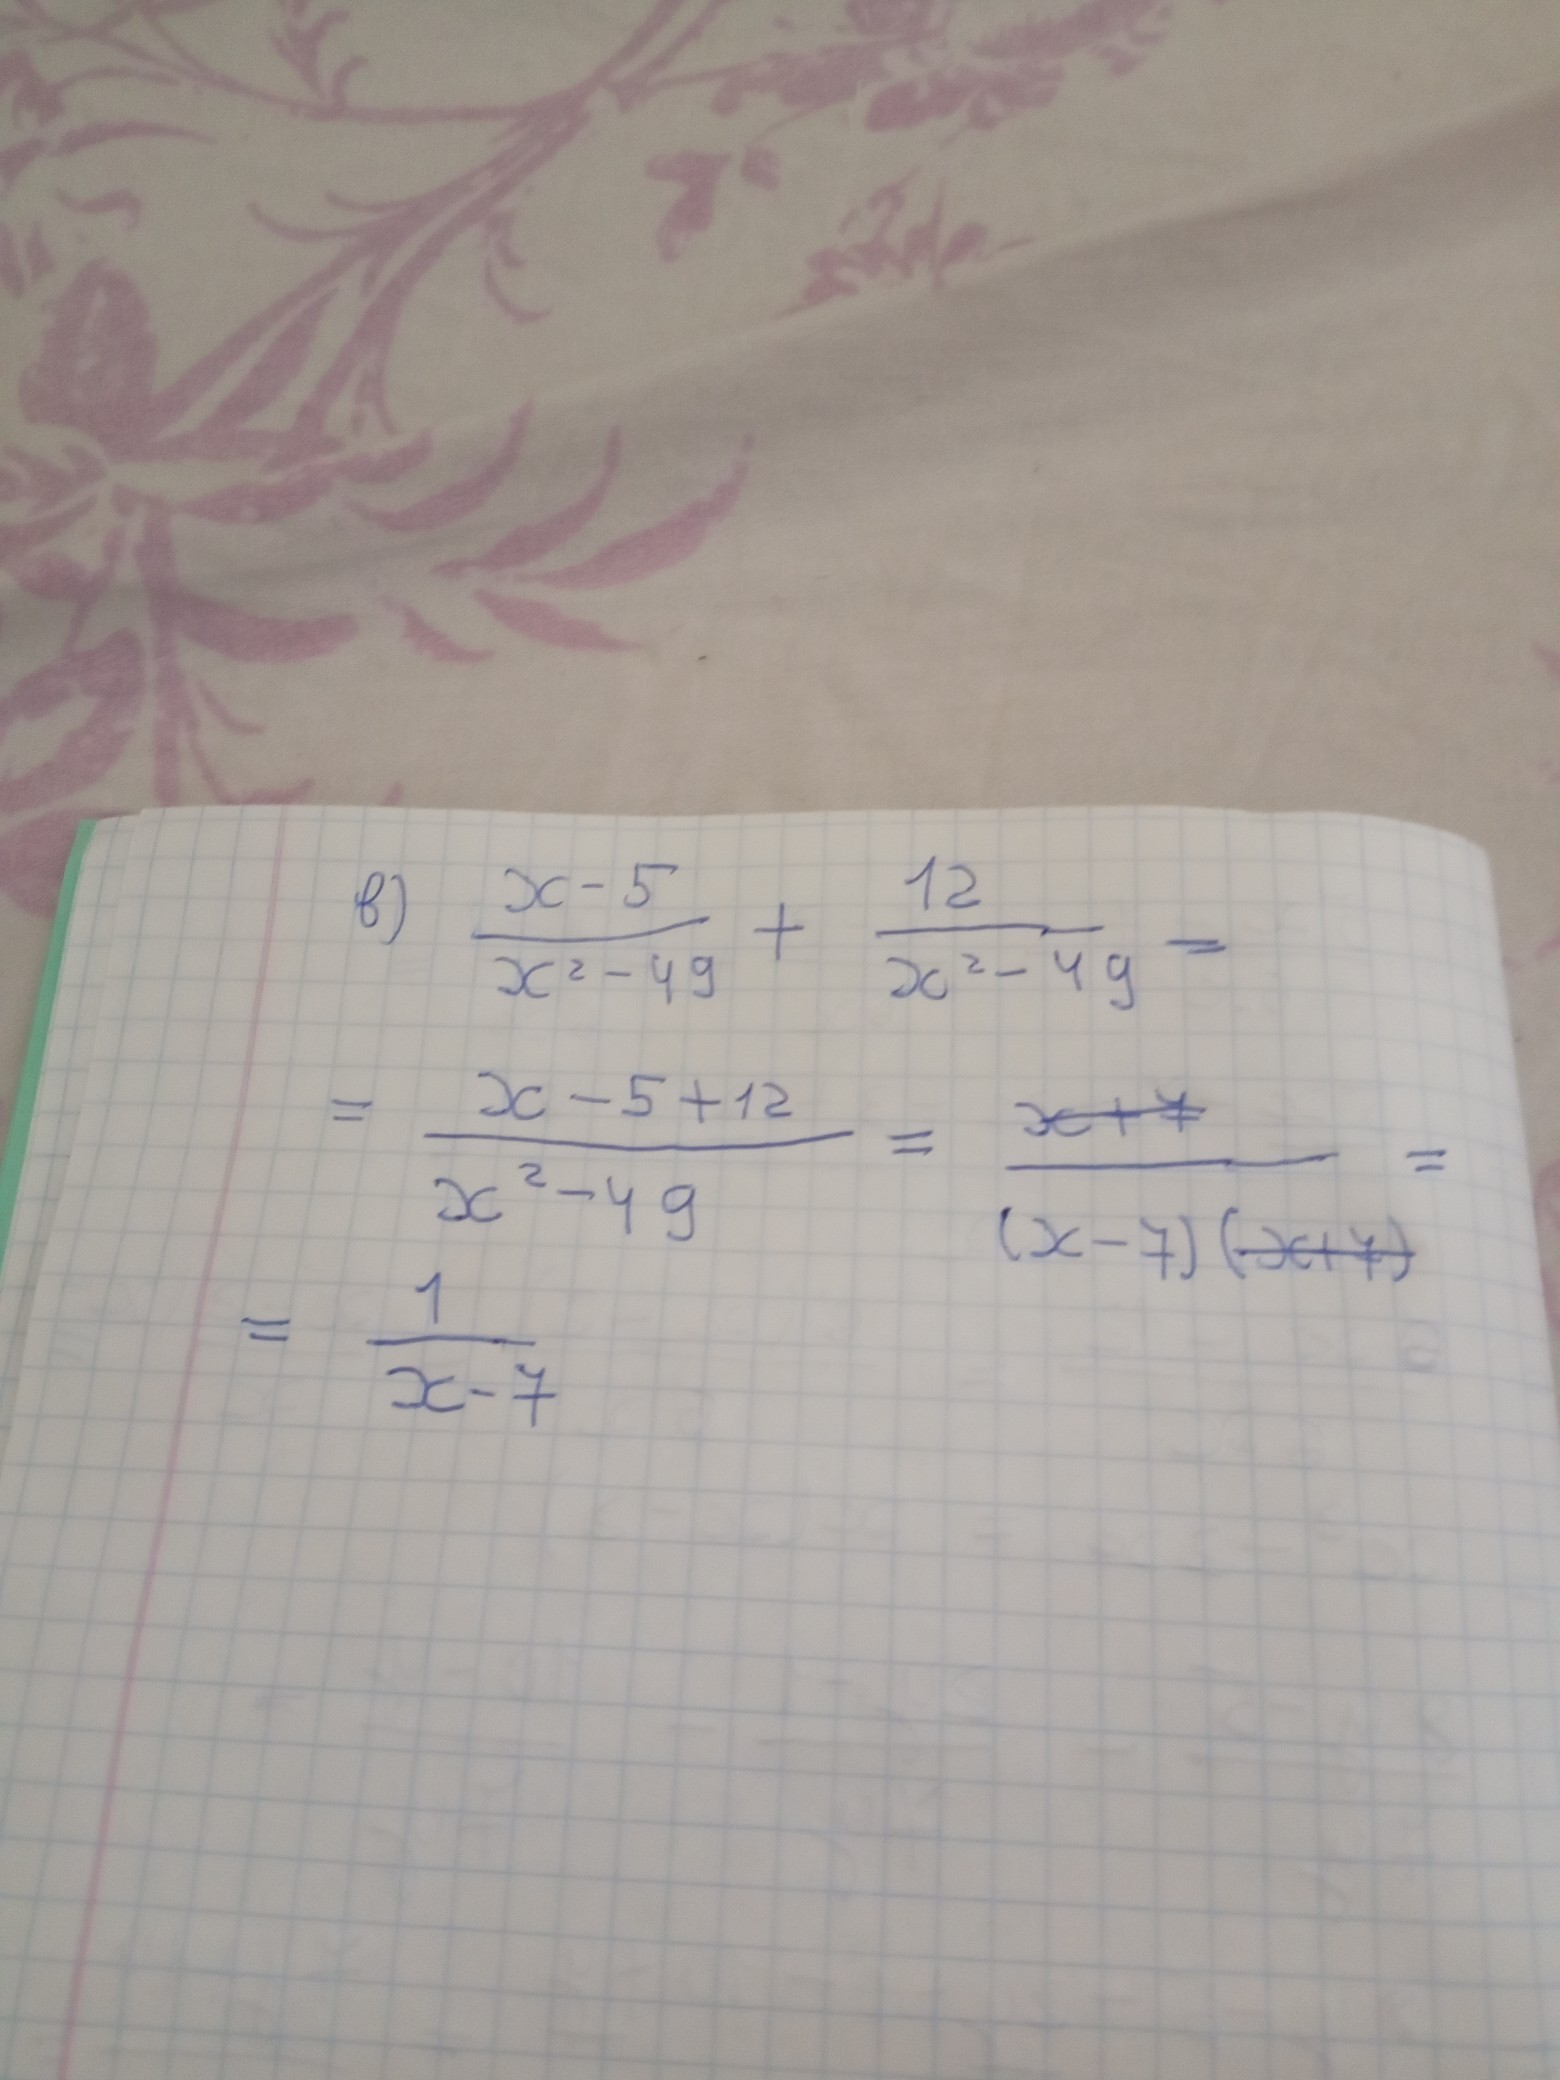 в) (x-5)/(x²-49) + 12/(x²-49) =
= (x-5+12)/(x²-49) = (x+7)/((x-7)(x+7)) =
= 1/(x-7)